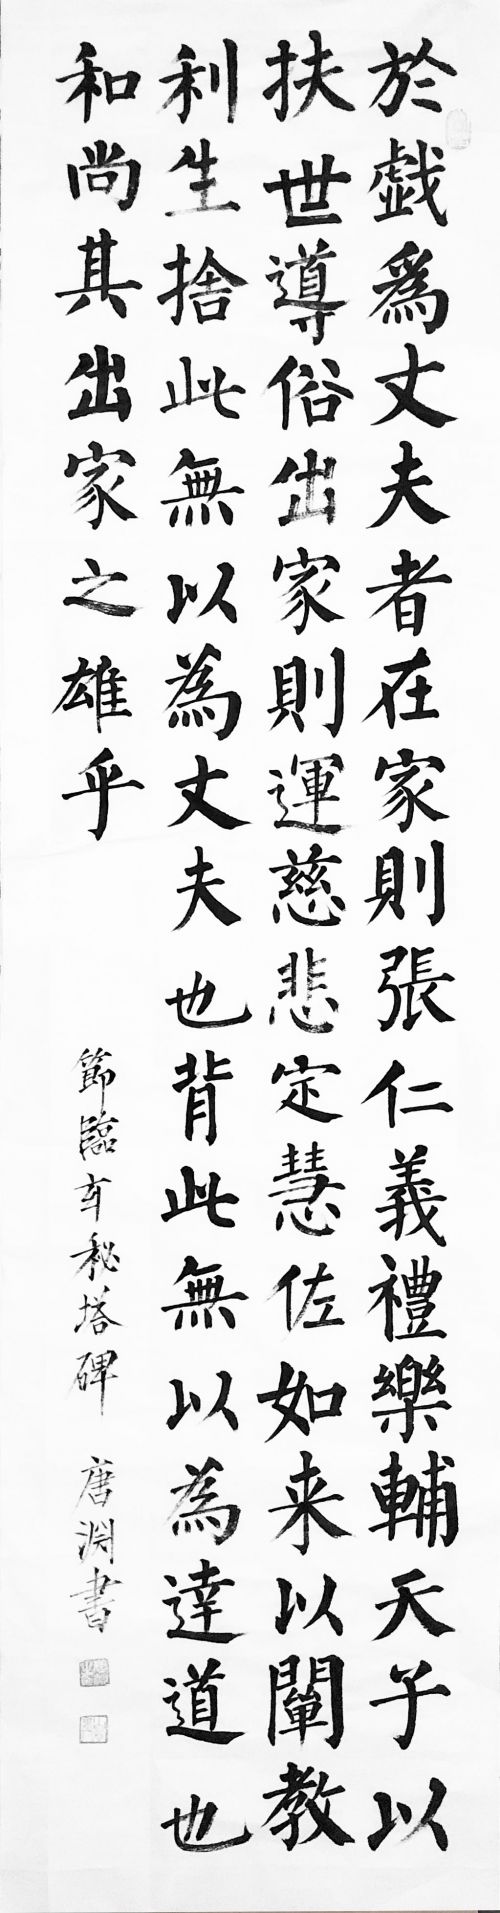 於戯爲丈夫者在家則張仁義禮樂輔天子以
扶世導俗出家則運慈悲定慧佐如来以闡教
利生捨此無以為丈夫也背此無以為達道也
和尚其出家之雄乎
節臨玄秘塔碑 唐渊書